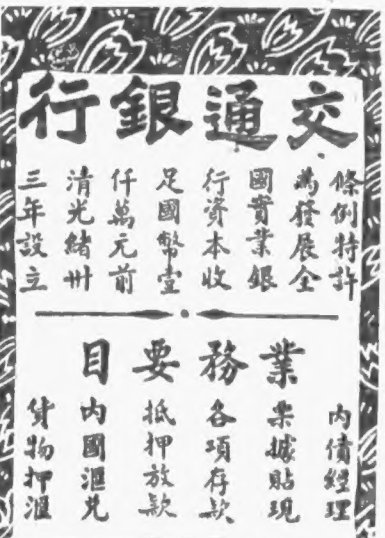 交通銀行
條例特許
為發展全
國實業銀
行資本收
足國幣壹
仟萬元前
清光緒卅
三年設立
業務要目
內債經理
票據貼現
各項存款
抵押放款
內國滙兌
貨物押滙